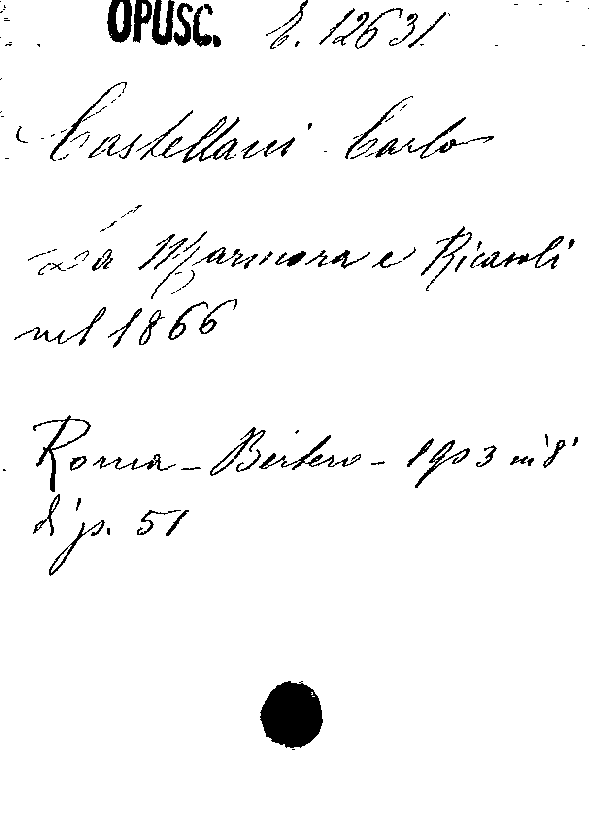 OPUSC. E. 12631
Castellani Carlo
La Marmora e Ricasoli
nel 1866
Roma - Bertero - 1903 in 8°
di p. 51